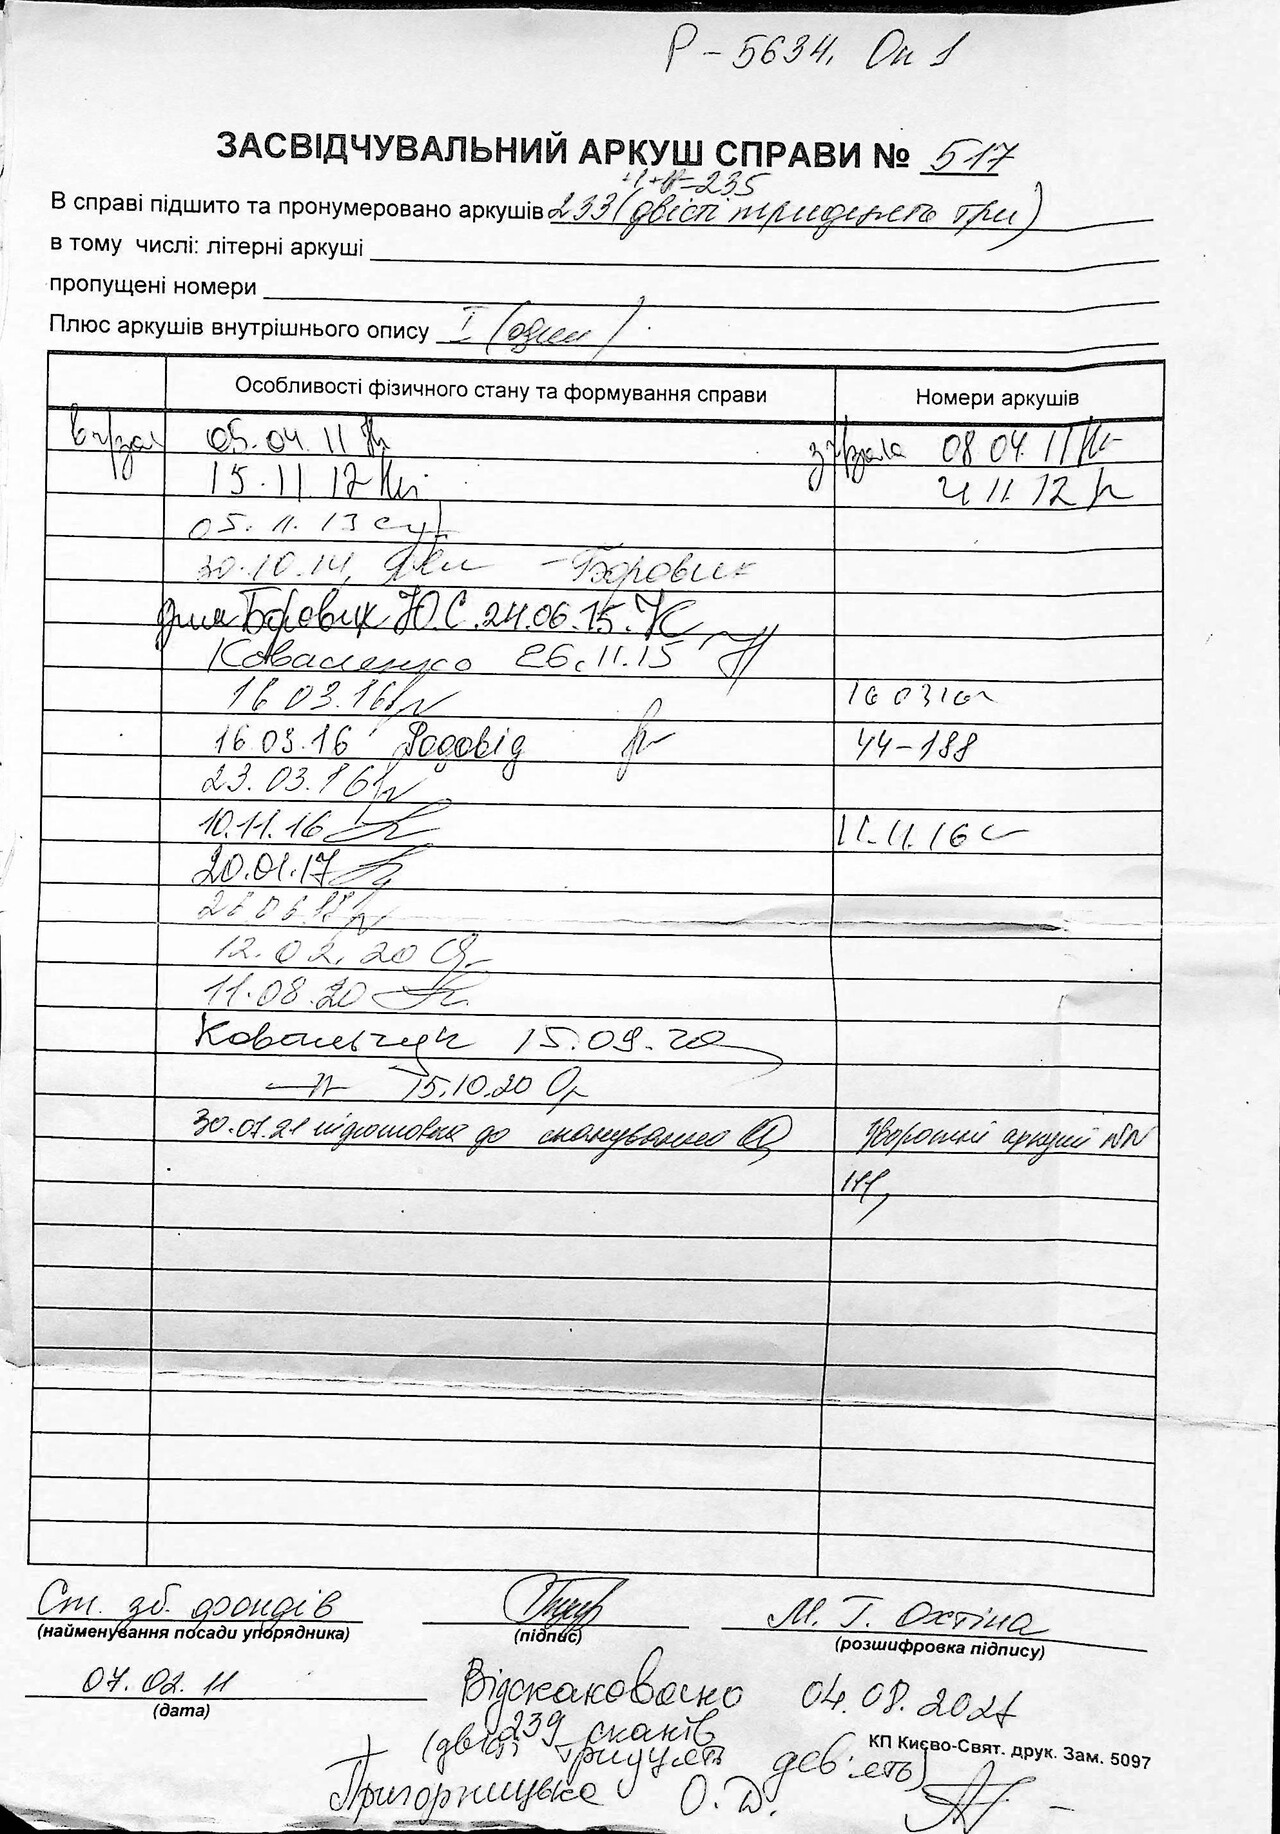 Р – 5634, Оп 1
ЗАСВІДЧУВАЛЬНИЙ АРКУШ СПРАВИ № 517
+1+1=235
В справі підшито та пронумеровано аркушів 233 (двісті тридцять три)
в тому числі: літерні аркуші
пропущені номери
Плюс аркушів внутрішнього опису I (один)
Особливості фізичного стану та формування справи Номери аркушів
05.04.11 08.04.11
15.11.12 11.12
05.11.13
30.10.14, – Боровик
для Боровик Ю.С. 24.06.15.
Коваленко 26.11.15
16.03.16 16 03 16
16.03.16 Родовід 44–188
23.03.16
10.11.16 11.11.16
20.01.17
12.02.20
11.08.20
Ковальчук 15.09.20
—"— 15.10.20
30.07.21 підготовка до сканування Зворотній аркушів №№
Ст. зб. фондів М. Г. Охтіна
(найменування посади упорядника) (підпис) (розшифровка підпису)
07.02.11
(дата)
Відскановано 04.08.2021
239 сканів
(двісті тридцять дев'ять)
КП Києво-Свят. друк. Зам. 5097
Пригорницька О. Д.